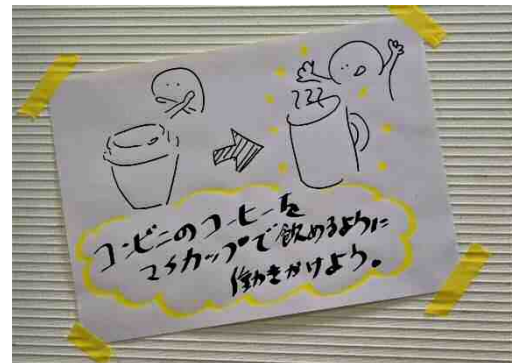 コンビニのコーヒーを
マイカップで飲めるように
働きかけよう。